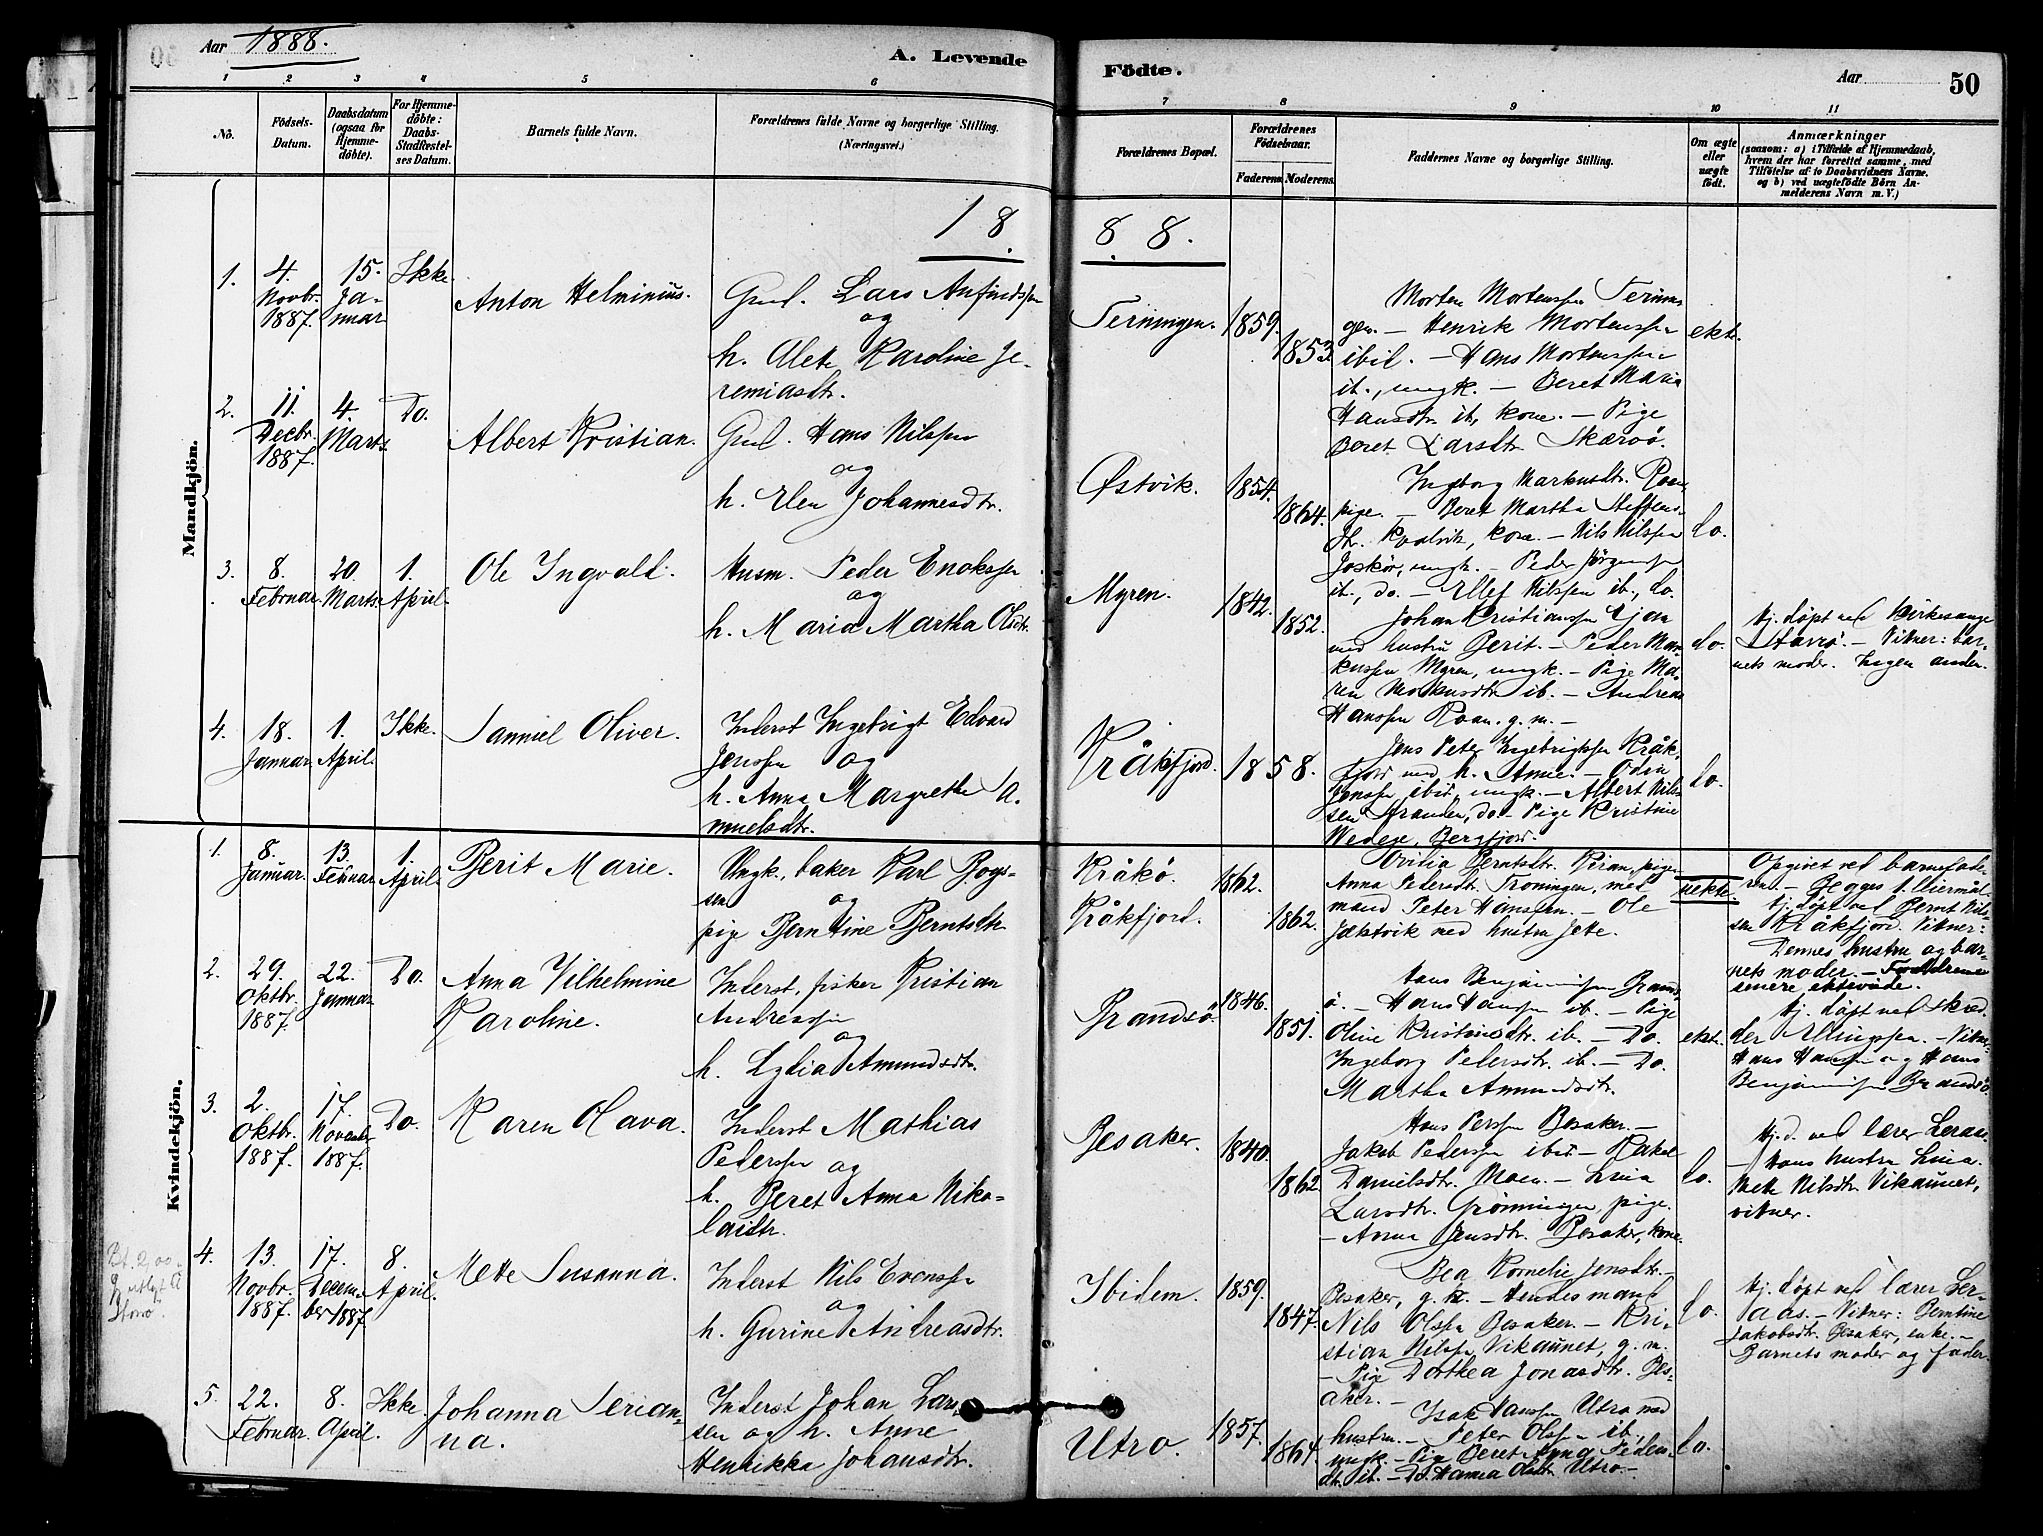 Aar 1888.
A. Levende
Födte.
Aar
50
1 2 3 4 5 6 7 8 9 10 11
No.
Födsels-
Datum.
Daabsdatum
(ogsaa for
Hjemme-
döbte).
For Hjemme-
döbte:
Daabs-
Stadfæstel-
ses Datum.
Barnets fulde Navn.
Forældrenes fulde Navne og borgerlige Stilling.
(Næringsvei.)
Forældrenes Bopæl.
Forældrenes
Födselsaar.
Faderens. Moderens.
Faddernes Navne og borgerlige Stilling.
Om ægte
eller
uægte
födt.
Anmærkninger
(saasom: a) i Tilfælde af Hjemmedaab,
hvem der har forrettet samme, med
Tilföielse af to Daabsvidners Navne.
og b) ved uægtefödte Börn An-
melderens Navn m. V.)
18
88.
Mandkjön.
1.
4.
Novbr.
1887.
15.
Ja-
nuar
Ikke.
Anton Helminius.
Gml. Lars Anfindssen
og
h. Alet Karoline Je-
remiasdtr.
Terningen.
1859.
1853.
Morten Mortenssen Ternin-
gen. – Henrik Mortenssen
ibid. – Hans Mortenssen
ib., ungk. – Beret Maria
Hansdtr. ib, kone. – Pige
Beret Larsdtr Skærvö.
ekte.
2.
11.
Decbr.
1887.
4.
Marts.
Do.
Albert Kristian.
Hans Nilssen
og
h. Elen Johannesdtr.
Østvik.
1854.
1864.
Ingeborg Markusdtr. Roan,
pige. – Beret Martha Steffens-
dtr. kone. – Nils Nilssen
ungk. – Peder Jörgenssen
ib., do. – Ellef Nilssen ib., do.
do.
3.
8.
Februar.
20.
Marts.
1.
April.
Ole Ingvald.
Husm. Peder Enokssen
og
h. Maria Martha Olsdtr.
Myren.
1842.
1852.
Johan Kristianssen
med hustru Berit. – Peder Mar-
kussen Myren, ungk. – Pige Ma-
ren Markusdtr ib. – Andreas
Hanssen Roan. g. m. –
do.
Hj. döpt ved kirkesanger
Vitner: bar-
nets moder. Ingen anden.
4.
18.
Januar.
1.
April.
Ikke.
Samuel Oliver.
Inderst Ingebrigt Edvard
Jenssen og
h. Anna Margrethe Sa-
muelsdtr.
Kråkfjord.
1858.
Jens Peter Ingebrigtssen Kråk-
fjord med h. Anne. – Odin
Jenssen ibid, ungk. – Albert Nils-
sen Stranden, do – Pige Kristine
Wedege, Bergfjord.
do.
Kvindekjön.
1.
8.
Januar.
13.
Februar
1.
April.
Berit Marie.
Ungk., baker Karl Bogs-
sen og
pige Berntine Berntsdtr.
Kråkö.
Kråkfjord.
1862.
1862.
Berntsdtr. Kiran, pige.
Anna Pedersdtr. Terningen, med
mand Peter Hanssen. – Ole
Jektvik med hustru Jete.
uekte.
Opgivet ved barnefade-
ren. – Begges 1. leiermål.
Hj. döpt ved Bernt Nils-
sen Kråkfjord. Vitner:
Dennes hustru og bar-
nets moder. – Foreldrene
senere ektevide.
2.
29.
Oktbr.
1887.
22.
Januar
Do.
Anna Vilhelmine
Karoline.
Inderst, fisker Kristian
Andreassen
og
h. Lydia Amundsdtr.
Brandsö.
1846.
1851.
Hans Benjaminssen Brands-
ö. – Hans Hanssen ib. – Pige
Oline Kristensdtr. ib. – Do.
Ingeborg Pedersdtr. ib. – Do.
Martha Amundsdtr.
ekte.
Hj. döpt ved skred-
der Ellingsen. – Vitner:
Hans Hansen og Hans
Benjaminssen Brandsö.
3.
2.
Oktbr.
1887.
17.
Novembr
1887.
Do.
Karen Olava.
Inderst Mathias
Pederssen og
h. Beret Anna Niko-
laidtr.
Besaker.
1840.
1862.
Hans Perssen Besaker. –
Jakob Pederssen ibid – Rakel
Danielsdtr. Moen. – Lina
Larsdtr. Grönningen, pige.
– Anna Jensdtr. Besaker, kone.
do.
Hj. d. ved lærer Leraas.
– Hans hustru Lina.
Mette Nilsdtr Vikaunet,
vitner.
4.
13.
Novbr.
1887.
17.
Decem-
ber 1887.
8.
April.
Mette Susanna.
Inderst Nils Evenssen
og
h. Gurine Andreasdtr.
Ibidem.
1859.
1847.
Bea Kornelie Jensdtr. –
Besaker, g. k. – Hendes mand
Nils Olssen Besaker. – Kri-
stian Nilssen Vikaunet, g. m.
– Pige Dorthea Jonasdtr. Bes-
aker. –
do.
Hj. döpt ved lærer Ler-
aas. – Vitner: Berntine
Jakobsdtr. Besaker, enke. –
Barnets moder og fader.
5.
22.
Februar.
8.
April.
Ikke.
Johanna Serian-
na.
Inderst Johan Lars-
sen og h. Anne
Henrikka Johansdtr.
Utro.
1857.
1864.
Isak Hanssen Utro med
hustru. – Peter Olssen ib.,
ungk. – Pige Beret Anna Peders-
dtr. ib. – Do Hanna Olsdtr. Utro –
do.